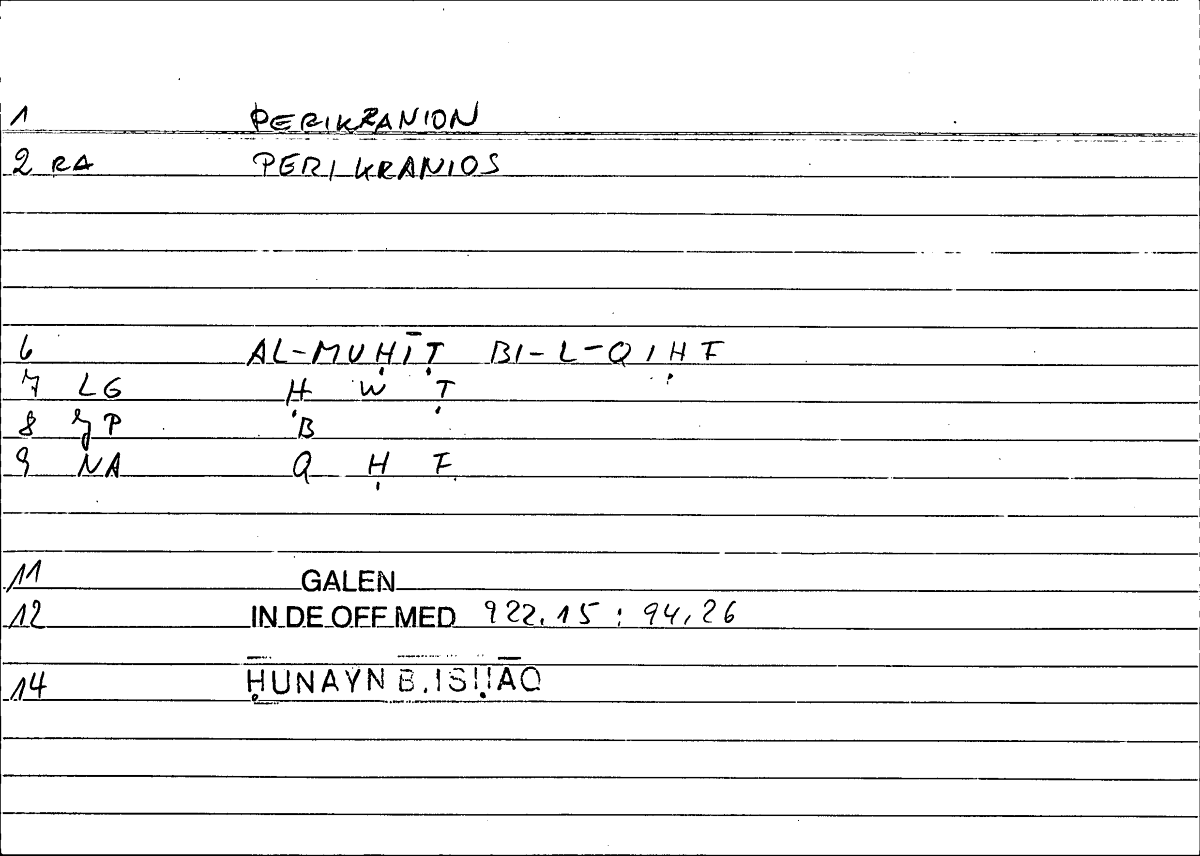 1 PERIKRANION
2 RA PERIKRANIOS
6 AL-MUḤĪṬ BI-L-QIḤF
7 LG Ḥ W Ṭ
8 JP B
9 NA Q Ḥ F
11 GALEN
12 IN DE OFF MED 922.15 : 94,26
14 ḤUNAYN B. ISḤĀQ